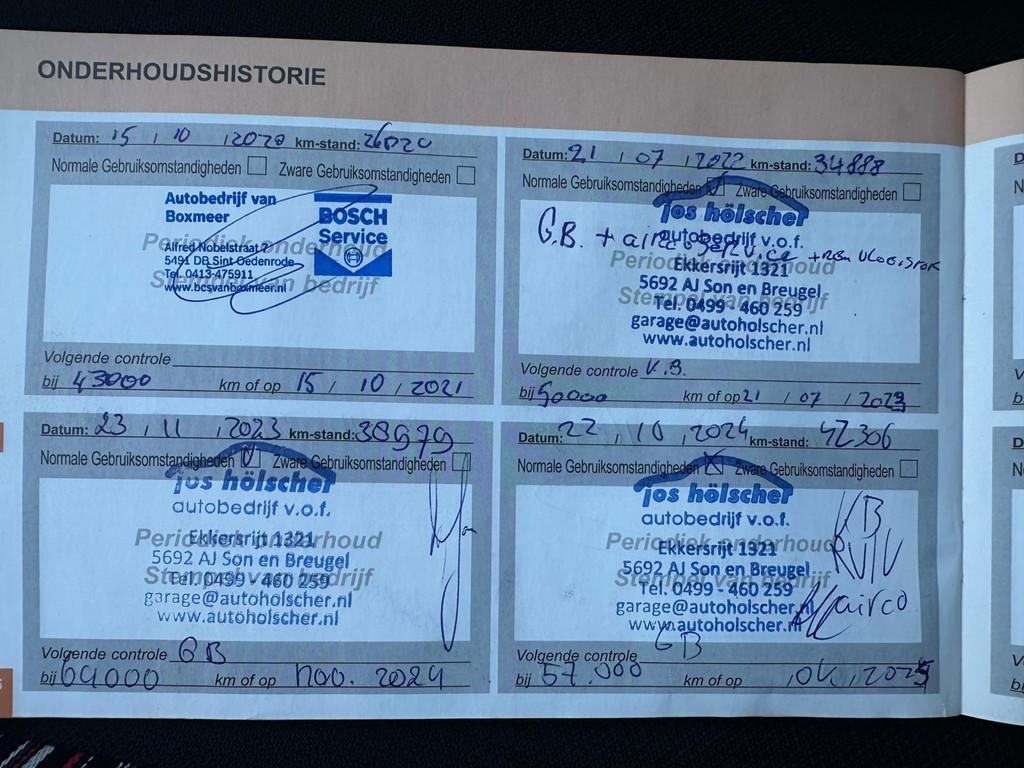 ONDERHOUDSHISTORIE
Datum: 15 / 10 / 2020 km-stand: 26020
Normale Gebruiksomstandigheden Zware Gebruiksomstandigheden
Autobedrijf van
Boxmeer
BOSCH
Service
Periodiek onderhoud
Alfred Nobelstraat 7
5491 DB Sint Oedenrode
Tel. 0413-475911
Stempel van bedrijf
www.bcsvanboxmeer.nl
Volgende controle
bij 43000 km of op 15 / 10 / 2021
Datum: 21 / 07 / 2022 km-stand: 34888
Normale Gebruiksomstandigheden Zware Gebruiksomstandigheden
jos hölscher
autobedrijf v.o.f.
G.B. + airco service + rem vloeistof
Periodiek onderhoud
Ekkersrijt 1321
5692 AJ Son en Breugel
Stempel van bedrijf
Tel. 0499 - 460 259
garage@autoholscher.nl
www.autoholscher.nl
Volgende controle K.B.
bij 50000 km of op 21 / 07 / 2023
Datum: 23 / 11 / 2023 km-stand: 38979
Normale Gebruiksomstandigheden Zware Gebruiksomstandigheden
jos hölscher
autobedrijf v.o.f.
Periodiek onderhoud
Ekkersrijt 1321
5692 AJ Son en Breugel
Stempel van bedrijf
Tel. 0499 - 460 259
garage@autoholscher.nl
www.autoholscher.nl
Volgende controle GB
bij 64000 km of op nov. 2024
Datum: 22 / 10 / 2024 km-stand: 42306
Normale Gebruiksomstandigheden Zware Gebruiksomstandigheden
jos hölscher
autobedrijf v.o.f.
KB
Periodiek onderhoud
Ekkersrijt 1321
RV/V
5692 AJ Son en Breugel
Stempel van bedrijf
Tel. 0499 - 460 259
airco
garage@autoholscher.nl
www.autoholscher.nl
Volgende controle GB
bij 57.000 km of op / okt / 2025